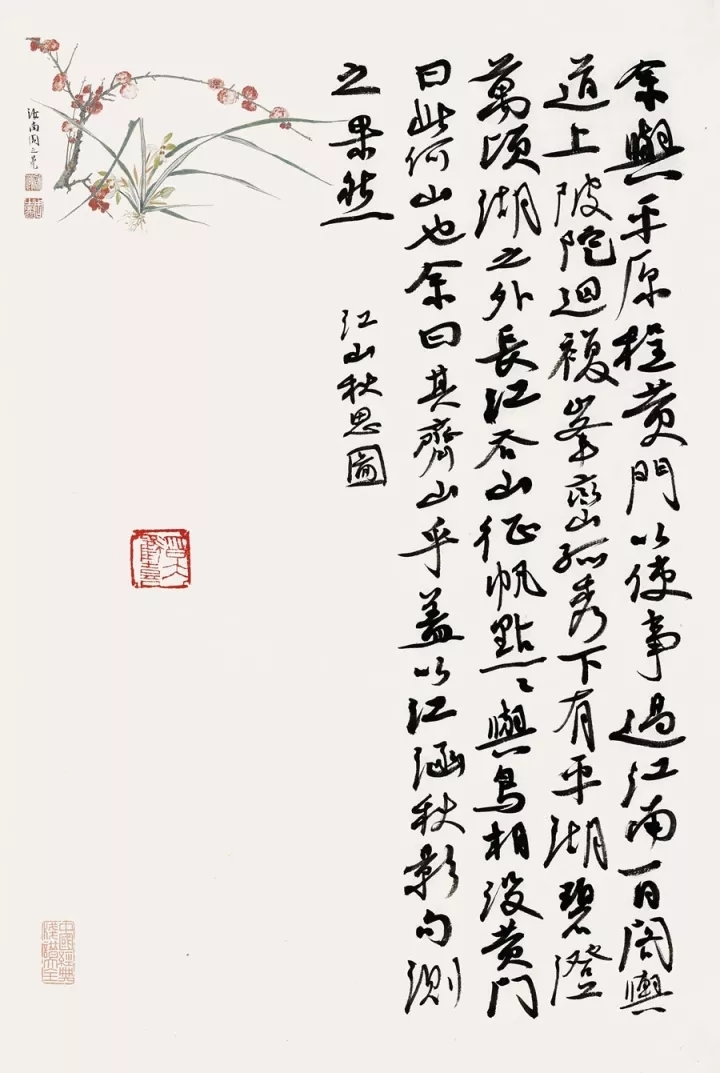 余與平原程黄門以使事過江南一日閣輿
道上陂陀迴複峯巒孤秀下有平湖碧澄
萬頃湖之外長江吞山征帆點〻與鳥相没黄門
曰此何山也余曰其齊山乎蓋以江涵秋影句測
之果然
江山秋思圖
汝南周之冕
中國經典